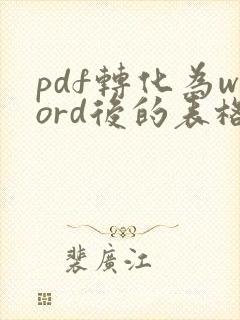 pdf轉化為w
ord後的表格
裴廣江